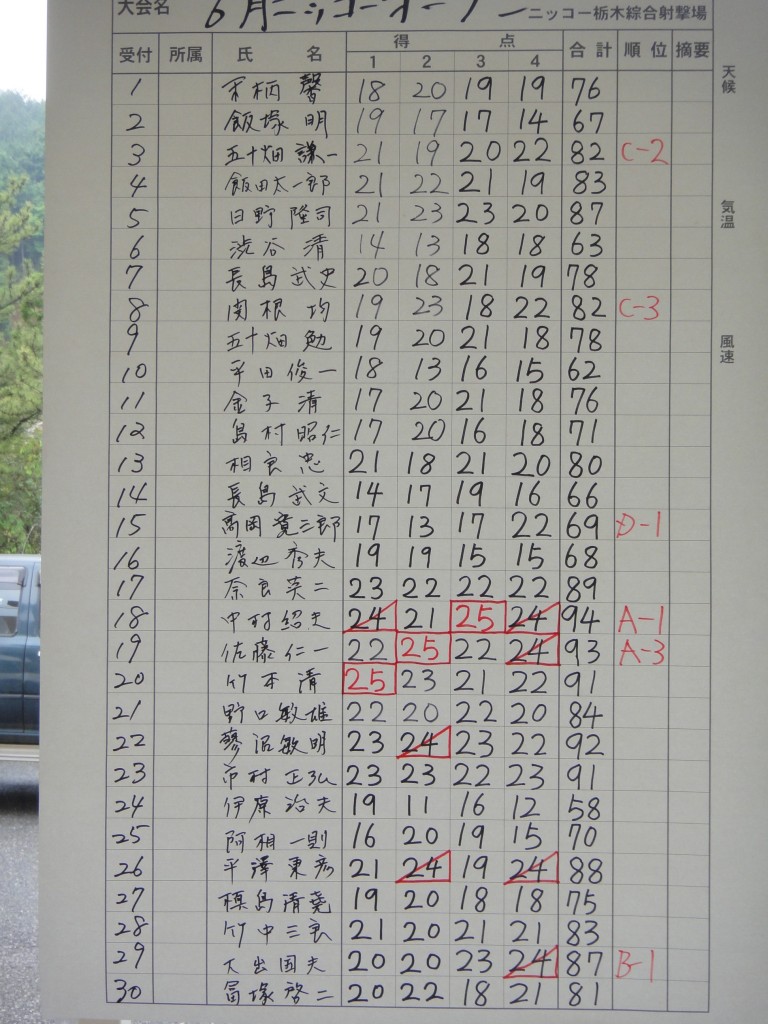 大会名 6月ニッコーオープン ニッコー栃木綜合射撃場
受付 所属 氏名 得点 合計 順位 摘要
1 2 3 4
天候
気温
風速
1 柄 馨 18 20 19 19 76
2 飯塚 明 19 17 17 14 67
3 五十畑 謙一 21 19 20 22 82 C-2
4 飯田太一郎 21 22 21 19 83
5 日野 隆司 21 23 23 20 87
6 渋谷 清 14 13 18 18 63
7 長島 武史 20 18 21 19 78
8 関根 均 19 23 18 22 82 C-3
9 五十畑 勉 19 20 21 18 78
10 平田 俊一 18 13 16 15 62
11 金子 清 17 20 21 18 76
12 島村 昭仁 17 20 16 18 71
13 相良 忠 21 18 21 20 80
14 長島 武文 14 17 19 16 66
15 高岡 寛三郎 17 13 17 22 69 D-1
16 渡辺 秀夫 19 19 15 15 68
17 奈良 英二 23 22 22 22 89
18 中村 紹夫 24 21 25 24 94 A-1
19 佐藤 仁一 22 25 22 24 93 A-3
20 竹本 清 25 23 21 22 91
21 野口 敏雄 22 20 22 20 84
22 蓼沼 敏明 23 24 23 22 92
23 市村 正弘 23 23 22 23 91
24 伊原 治夫 19 11 16 12 58
25 阿相 一則 16 20 19 15 70
26 平澤 東彦 21 24 19 24 88
27 槙島 清堯 19 20 18 18 75
28 竹中 三良 21 20 21 21 83
29 大出 国夫 20 20 23 24 87 B-1
30 冨塚 啓二 20 22 18 21 81